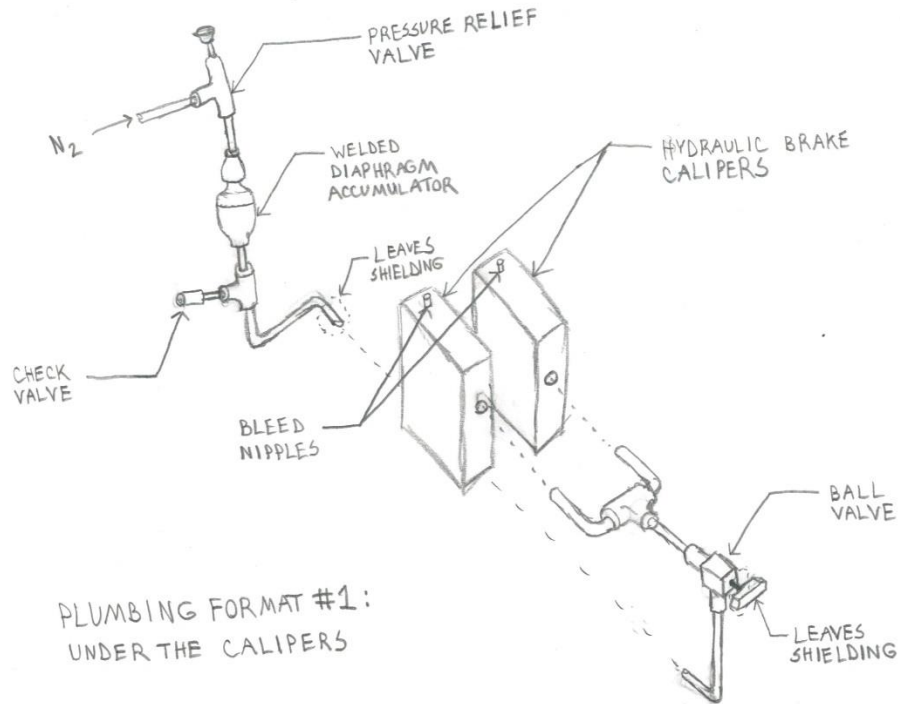 PRESSURE RELIEF
VALVE
N2
WELDED
DIAPHRAGM
ACCUMULATOR
HYDRAULIC BRAKE
CALIPERS
LEAVES
SHIELDING
CHECK
VALVE
BLEED
NIPPLES
BALL
VALVE
LEAVES
SHIELDING
PLUMBING FORMAT #1:
UNDER THE CALIPERS